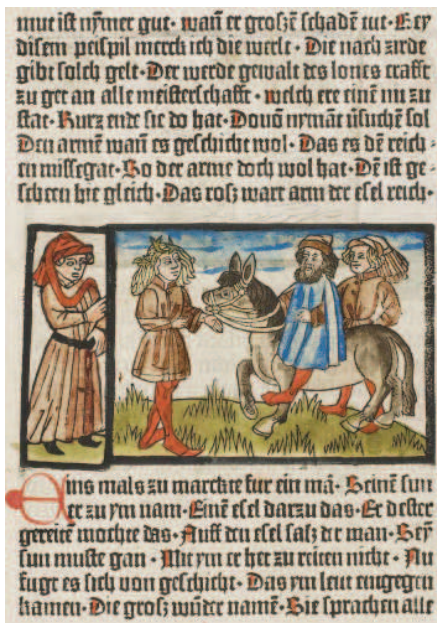 mut ist nӯmer gut· wañ er groszē schadē tut· Bey
disem peispil merck ich die werlt· Die nach zirde
gibt solch gelt· Der werde gewalt des lones crafft
zu get an alle meisterschafft· welch ere einē nu zu
stat· Kurz ende sie do hat· Douō nymāt ūsuchē sol
Den armē wañ es geschicht wol· Das es dē reich-
en missegat· So der arme doch wol hat· Dē ist ge-
scheen hie gleich· Das rosz wart arm der esel reich·
Eins mals zu marckte fur ein mā· Seinē sun
er zu ym nam· Einē esel darzu das· Er dester
gereitē mochte bas· Auff den esel sasz der man· Sey
sun muste gan· Mit ym er her zu reiten nicht· Nu
fuge es sich von geschicht· Das ym leut engegen
kamen· Die grosz wūder namē· Sie sprachen alle